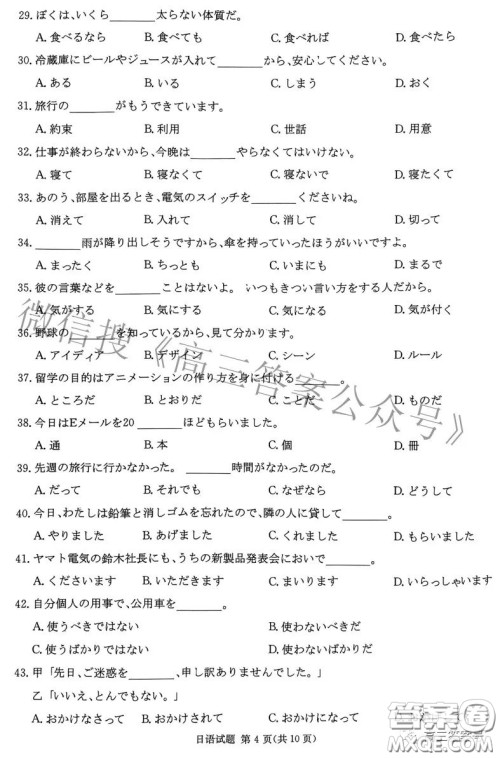 29. ぼくは、いくら________太らない体質だ。
A. 食べるなら B. 食べても C. 食べれば D. 食べたら
30. 冷蔵庫にビールやジュースが入れて________から、安心してください。
A. ある B. いる C. しまう D. おく
31. 旅行の________がもうできています。
A. 約束 B. 利用 C. 世話 D. 用意
32. 仕事が終わらないから、今晩は________やらなくてはいけない。
A. 寝て B. 寝なくて C. 寝ないで D. 寝たくて
33. あのう、部屋を出るとき、電気のスイッチを________くださいね。
A. 消えて B. 入れて C. 消して D. 切って
34. ________雨が降り出しそうですから、傘を持っていったほうがいいですよ。
A. まったく B. ちっとも C. いまにも D. まるで
35. 彼の言葉などを________ことはないよ。いつもきつい言い方をする人だから。
A. 気がする B. 気にする C. 気になる D. 気が付く
36. 野球の________を知っているから、見て分かります。
A. アイディア B. デザイン C. シーン D. ルール
37. 留学の目的はアニメーションの作り方を身に付ける________。
A. ところだ B. とおりだ C. ことだ D. ものだ
38. 今日はEメールを20________ほどもらいました。
A. 通 B. 本 C. 個 D. 冊
39. 先週の旅行に行かなかった。________時間がなかったのだ。
A. だって B. それでも C. なぜなら D. どうして
40. 今日、わたしは鉛筆と消しゴムを忘れたので、隣の人に貸して________。
A. やりました B. あげました C. くれました D. もらいました
41. ヤマト電気の鈴木社長にも、うちの新製品発表会においで________。
A. くださいます B. いただきます C. まいります D. いらっしゃいます
42. 自分個人の用事で、公用車を________。
A. 使うべきではない B. 使わないべきだ
C. 使うばかりではない D. 使わないばかりだ
43. 甲「先日、ご迷惑を________、申し訳ありませんでした。」
乙「いいえ、とんでもない。」
A. おかけなさって B. おかけされて C. おかけになって D. おかけして
日语试题 第 4 页(共 10 页)
微信搜《高三答案公众号》
答案圈
MXQE.COM